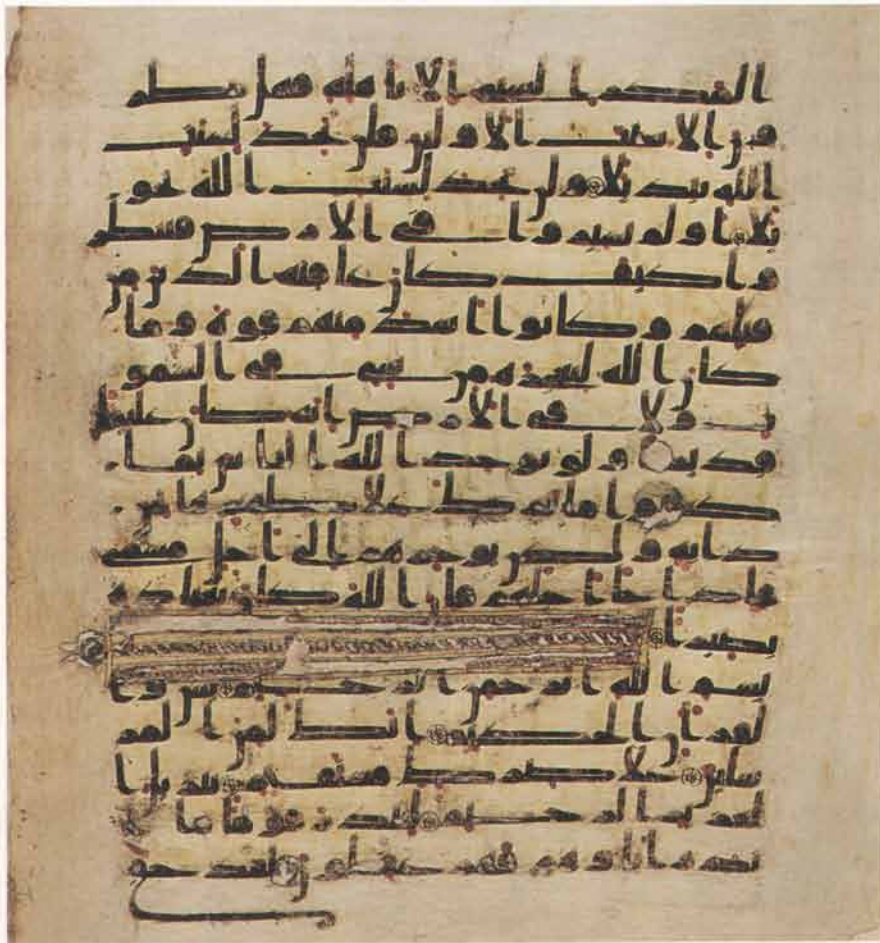 المكر السيئ الا باهله فهل ينظر
ون الا سنت الاولين فلن تجد لسنت
الله تبديلا ولن تجد لسنت الله تحو
يلا اولم يسيروا في الارض فينظر
وا كيف كان عاقبة الذين من
قبلهم وكانوا اشد منهم قوة وما
كان الله ليعجزه من شي في السمو
ت ولا في الارض انه كان عليما
قديرا ولو يوخذ الله الناس بما
كسبوا ما ترك على ظهرها من
دابة ولكن يوخرهم الى اجل مسمى
فاذا جا اجلهم فان الله كان بعباده
بصيرا
بسم الله الرحمن الرحيم يس وا
لقران الحكيم انك لمن المر
سلين على صرط مستقيم تنزيل ا
لعزيز الرحيم لتنذر قوما ما ا
نذر اباوهم فهم غفلون لقد حق